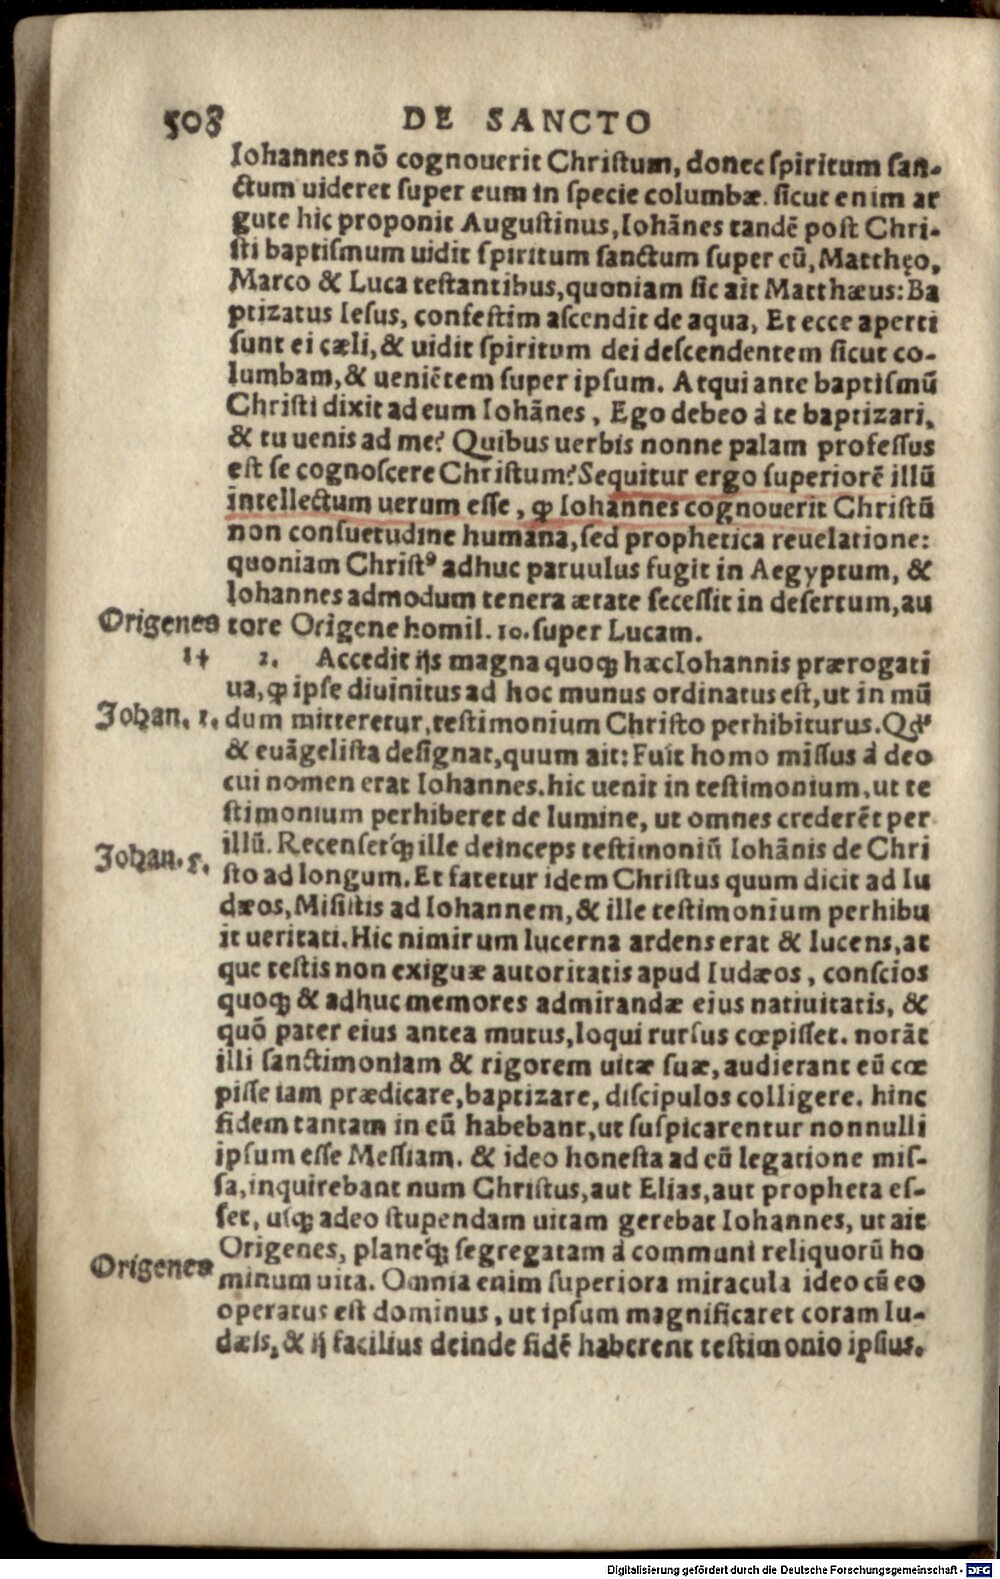 508 DE SANCTO
Iohannes nõ cognouerit Christum, donec spiritum san-
ctum uideret super eum in specie columbæ. sicut enim ar
gute hic proponit Augustinus, Iohãnes tandẽ post Chri-
sti baptismum uidit spiritum sanctum super eũ, Matthęo,
Marco & Luca testantibus, quoniam sic ait Matthæus: Ba
ptizatus Iesus, confestim ascendit de aqua, Et ecce aperti
sunt ei cæli, & uidit spiritum dei descendentem sicut co-
lumbam, & ueniẽtem super ipsum. Atqui ante baptismũ
Christi dixit ad eum Iohãnes, Ego debeo à te baptizari,
& tu uenis ad me? Quibus uerbis nonne palam professus
est se cognoscere Christum? Sequitur ergo superiorẽ illũ
intellectum uerum esse, ꝙ Iohannes cognouerit Christũ
non consuetudine humana, sed prophetica reuelatione:
quoniam Christꝰ adhuc paruulus fugit in Aegyptum, &
Iohannes admodum tenera ætate secessit in desertum, au
Origenes tore Origene homil. 10. super Lucam.
14 2. Accedit ijs magna quoqꝫ hæc Iohannis prærogati
ua, ꝙ ipse diuinitus ad hoc munus ordinatus est, ut in mũ
Johan. 1. dum mitteretur, testimonium Christo perhibiturus. Qđ
& euãgelista designat, quum ait: Fuit homo missus à deo
cui nomen erat Iohannes. hic uenit in testimonium, ut te
stimonium perhiberet de lumine, ut omnes crederẽt per
illũ. Recensetq́ꝫ ille deinceps testimoniũ Iohãnis de Chri
Johan. 5. sto ad longum. Et fatetur idem Christus quum dicit ad Iu
dæos, Misistis ad Iohannem, & ille testimonium perhibu
it ueritati. Hic nimirum lucerna ardens erat & lucens, at
que testis non exiguæ autoritatis apud Iudæos, conscios
quoqꝫ & adhuc memores admirandæ eius natiuitatis, &
quõ pater eius antea mutus, loqui rursus cœpisset. norãt
illi sanctimoniam & rigorem uitæ suæ, audierant eũ cœ
pisse iam prædicare, baptizare, discipulos colligere. hinc
fidem tantam in eũ habebant, ut suspicarentur nonnulli
ipsum esse Messiam. & ideo honesta ad eũ legatione mis-
sa, inquirebant num Christus, aut Elias, aut propheta es-
set, usqꝫ adeo stupendam uitam gerebat Iohannes, ut ait
Origenes Origenes, planeq́ꝫ segregatam à communi reliquorũ ho
minum uita. Omnia enim superiora miracula ideo cũ eo
operatus est dominus, ut ipsum magnificaret coram Iu-
dæis, & ij facilius deinde fidẽ haberent testimonio ipsius.
Digitalisierung gefördert durch die Deutsche Forschungsgemeinschaft - DFG